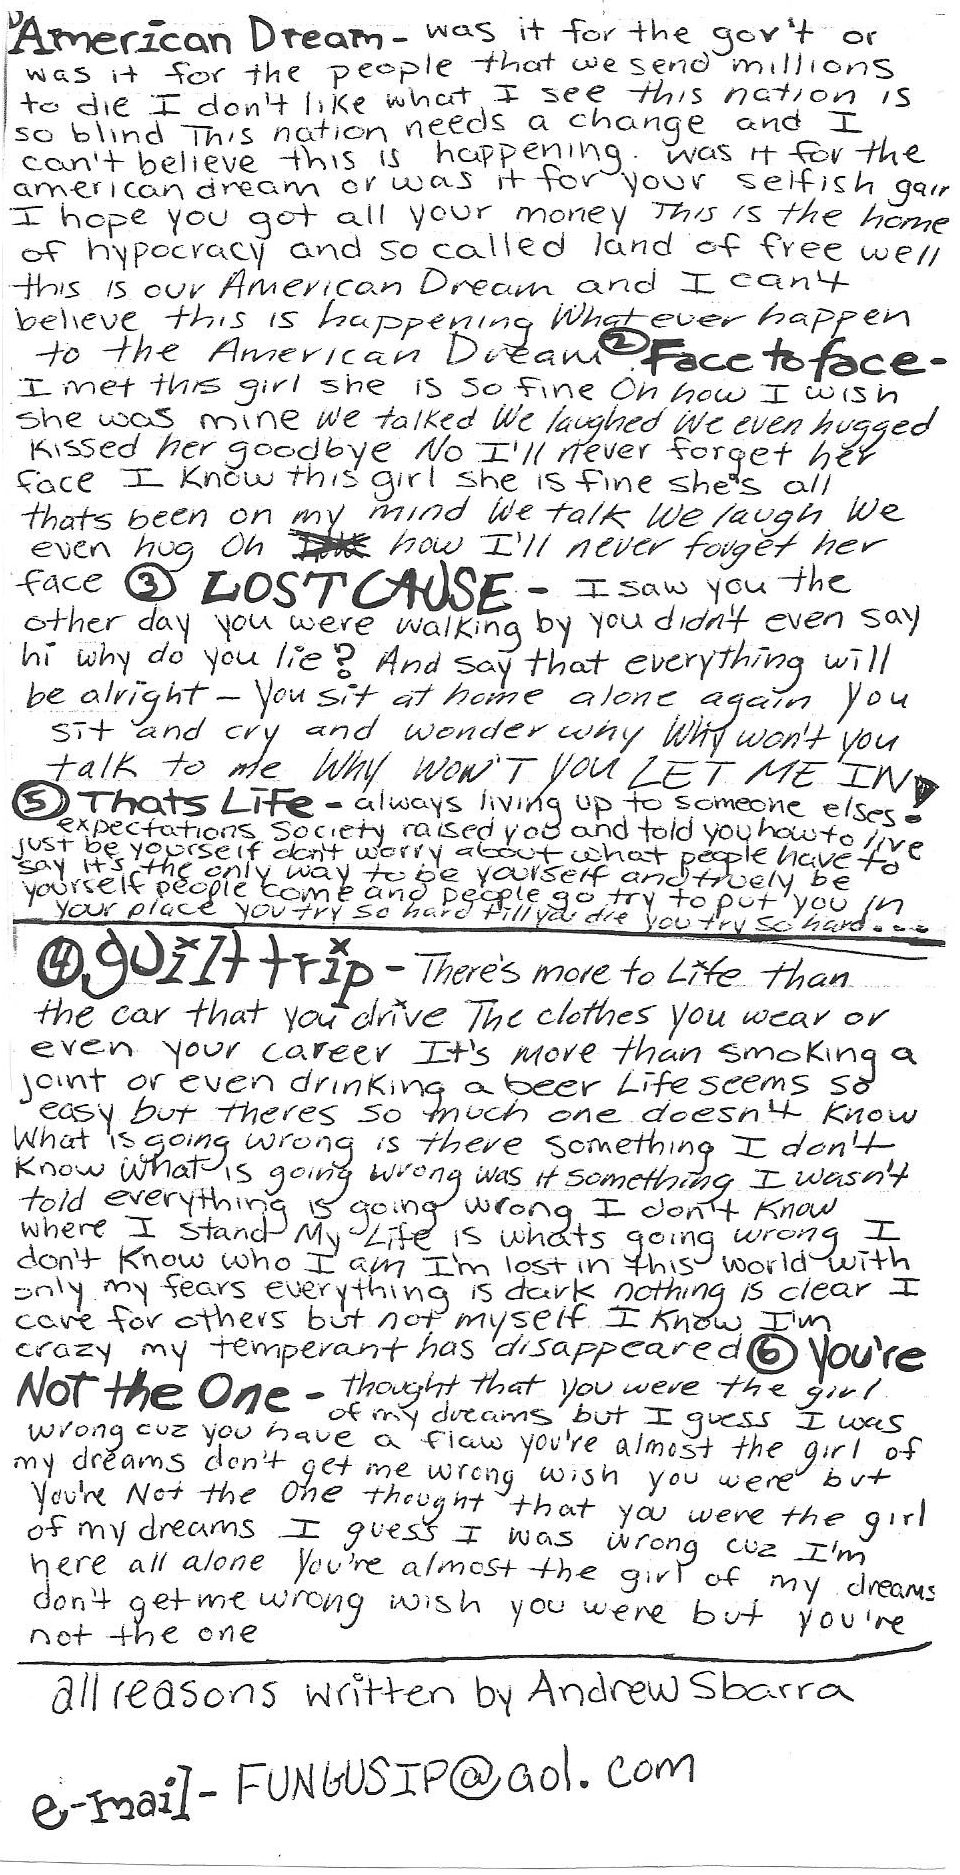 1) American Dream - was it for the gov't or
was it for the people that we send millions
to die I don't like what I see this nation is
so blind This nation needs a change and I
can't believe this is happening. was it for the
american dream or was it for your selfish gain
I hope you got all your money This is the home
of hypocracy and so called land of free well
this is our American Dream and I can't
believe this is happening What ever happen
to the American Dream ② Face to face -
I met this girl she is so fine Oh how I wish
she was mine We talked We laughed We even hugged
Kissed her goodbye No I'll never forget her
face I Know this girl she is fine she's all
thats been on my mind We talk We laugh We
even hug Oh how I'll never forget her
face ③ LOST CAUSE - I saw you the
other day you were walking by you didn't even say
hi why do you lie? And say that everything will
be alright - You sit at home alone again you
sit and cry and wonder why Why won't you
talk to me Why WON'T YOU LET ME IN!
⑤ Thats Life - always living up to someone elses
expectations Society raised you and told you how to live
just be yourself don't worry about what people have to
say it's the only way to be yourself and truely be
yourself people come and people go try to put you in
your place you try so hard till you die you try so hard....
④. guilt trip - There's more to Life than
the car that you drive The clothes you wear or
even your career It's more than smoking a
joint or even drinking a beer Life seems so
easy but theres so much one doesn't know
What is going wrong is there something I don't
Know what is going wrong was it something I wasn't
told everything is going wrong I don't Know
where I stand My Life is whats going wrong I
don't Know who I am I'm lost in this world with
only my fears everything is dark nothing is clear I
care for others but not myself I Know I'm
crazy my temperant has disappeared ⑥ You're
Not the One - thought that you were the girl
of my dreams but I guess I was
wrong cuz you have a flaw you're almost the girl of
my dreams don't get me wrong wish you were but
You're Not the One thought that you were the girl
of my dreams I guess I was wrong cuz I'm
here all alone You're almost the girl of my dreams
don't get me wrong wish you were but you're
not the one
all reasons written by Andrew Sbarra
e-mail - FUNGUSIP@aol.com